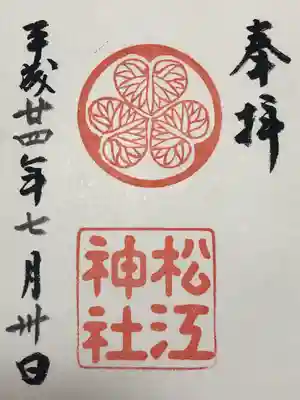 奉拝
松江
神社
平成廿四年七月卅日